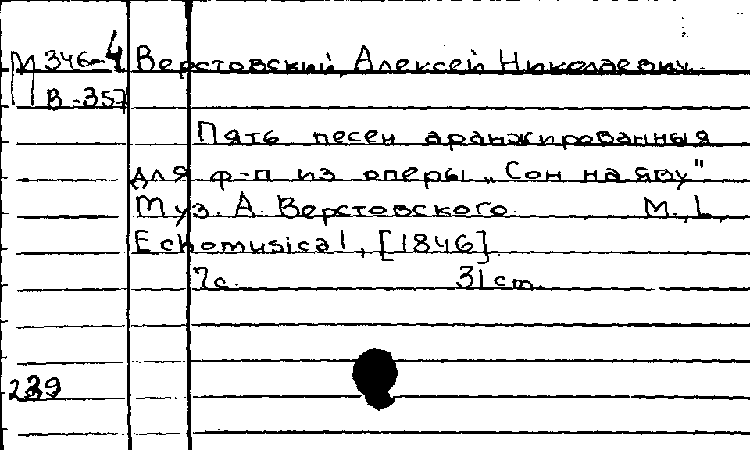 М 346-4 Верстовский, Алексей Николаевич.
В-357
Пять песен аранжированныя
для ф-п из оперы „Сон на яву"
Муз. А. Верстовского. М., L,
Echomusical, [1846].
7с. 31 cm.
239